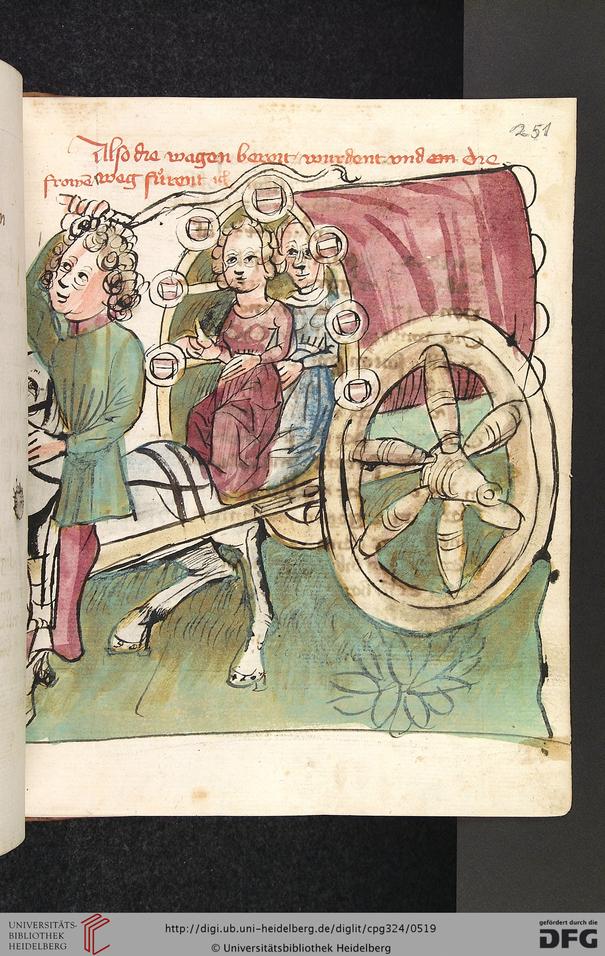 251
Also die wagen bereit wurdent vnd die
frowen weg fůrent
UNIVERSITÄTS-
BIBLIOTHEK
HEIDELBERG
http://digi.ub.uni-heidelberg.de/diglit/cpg324/0519
© Universitätsbibliothek Heidelberg
gefördert durch die
DFG